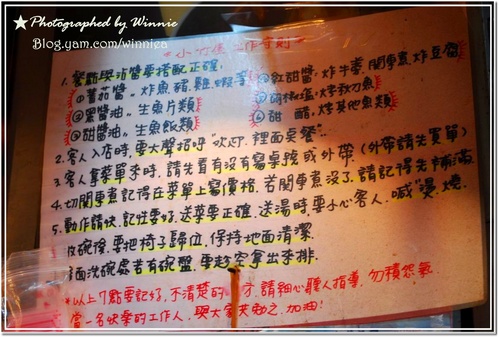 ★ Photographed by Winnie
Blog.yam.com/winniea
*小竹屋 工作守則*
1. 餐點與沾醬要搭配正確.
①蕃茄醬..炸魚.豬.雞.蝦等 ⑤紅甜醬:炸牛蒡.關東煮.炸豆腐
②黑醬油..生魚片類 胡椒鹽:烤秋刀魚
③甜醬油..生魚飯類 醋:烤其他魚類
2. 客人入店時,要大聲招呼"歡迎.裡面桌餐"..
3. 客人拿菜單來時,請先看有沒有寫桌號或外帶(外帶請先買單)
4. 切關東煮記得在菜單上寫價格.若關東煮沒了.請記得先補滿
5. 動作請快.記性要好.送菜要正確.送湯時.要小心客人.喊"燙.燒.
收碗後.要把椅子歸位.保持地面清潔
面洗碗處若有碗盤.要趁空拿出來排.
*以上7點要記好.不清楚的 請細心聽人指導.勿積怨氣.
當一名快樂的工作人.與大家共勉之.加油!